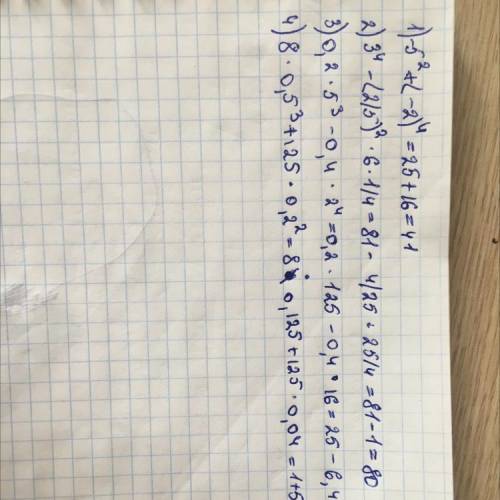 1) -5² + (-2)⁴ = 25 + 16 = 41
2) 3⁴ - (2/5)² · 6 · 1/4 = 81 - 4/25 · 25/4 = 81 - 1 = 80
3) 0,2 · 5³ - 0,4 · 2⁴ = 0,2 · 125 - 0,4 · 16 = 25 - 6,4
4) 8 · 0,5³ + 125 · 0,2² = 8 · 0,125 + 125 · 0,04 = 1 + 5